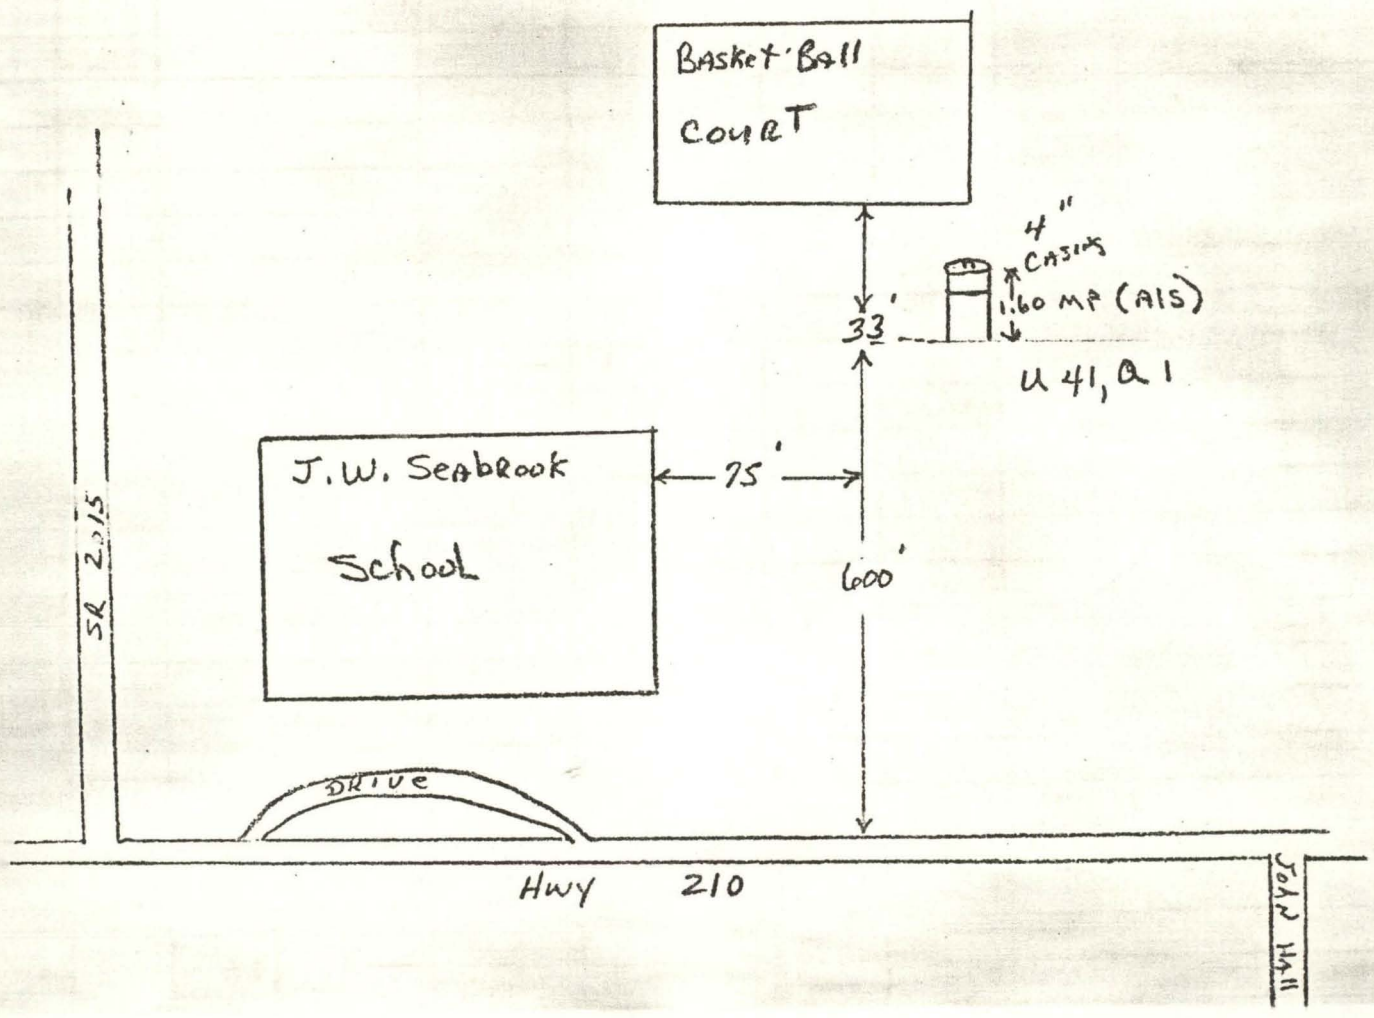 BASKet-BAll
COURT
4"
CASING
1.60 MP (AlS)
33'
U 41, Q 1
J.W. SeAbROOK
School
75'
600'
SR 2015
DRIVE
Hwy 210
JOHN HAll